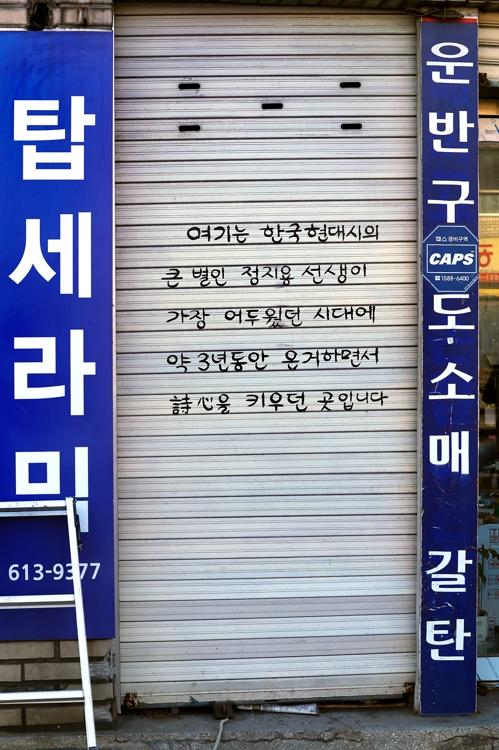 탑세라믹
613-9377
여기는 한국현대시의
큰 별인 정지용 선생이
가장 어두웠던 시대에
약 3년동안 은거하면서
詩心을 키우던 곳입니다
운반구도소매 갈탄
캡스 경비구역
CAPS
☎1588-6400